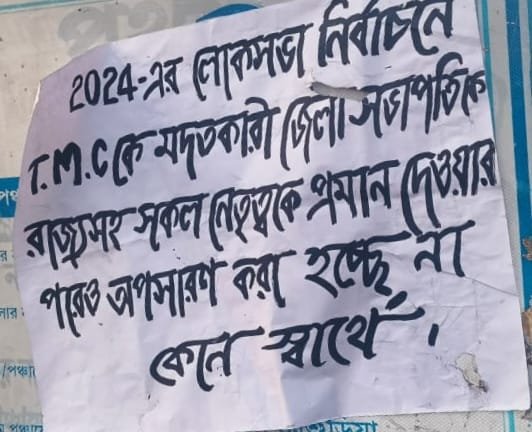 2024-এর লোকসভা নির্বাচনে
T.M.C কে মদতকারী জেলা সভাপতিকে
রাজ্যসহ সকল নেতৃত্বকে প্রমান দেওয়ার
পরেও অপসারণ করা হচ্ছে না
কেনে স্বার্থে।